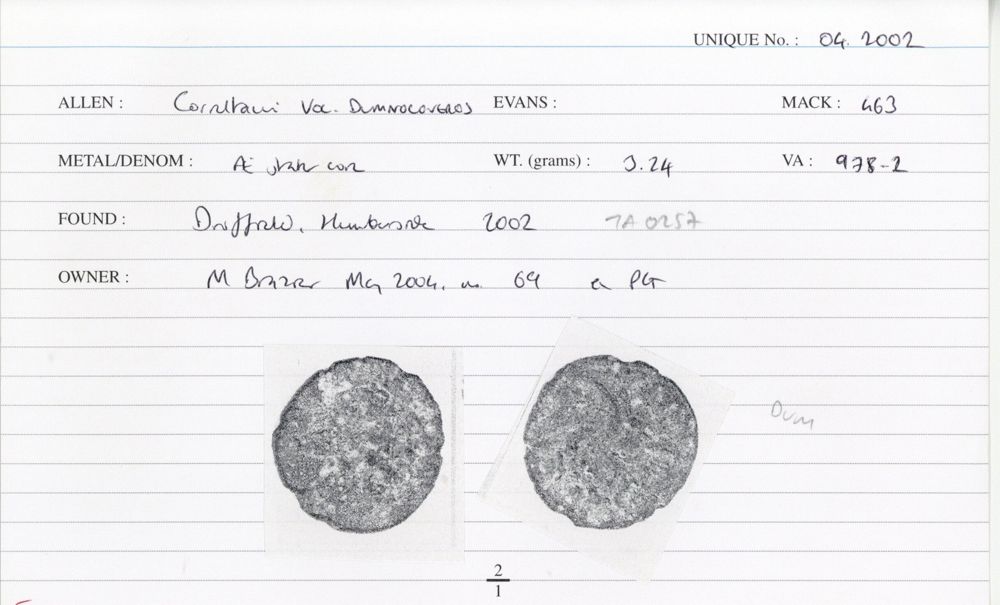 UNIQUE No. : 04. 2002
ALLEN : Corieltauvi Vol. DUMNOCOVEROS EVANS : MACK : 463
METAL/DENOM : Æ stater core WT. (grams) : 3.24 VA : 978-2
FOUND : Driffield, Humberside 2002 TA 0257
OWNER : M 2004, no. 69 PG
Dum
2
1